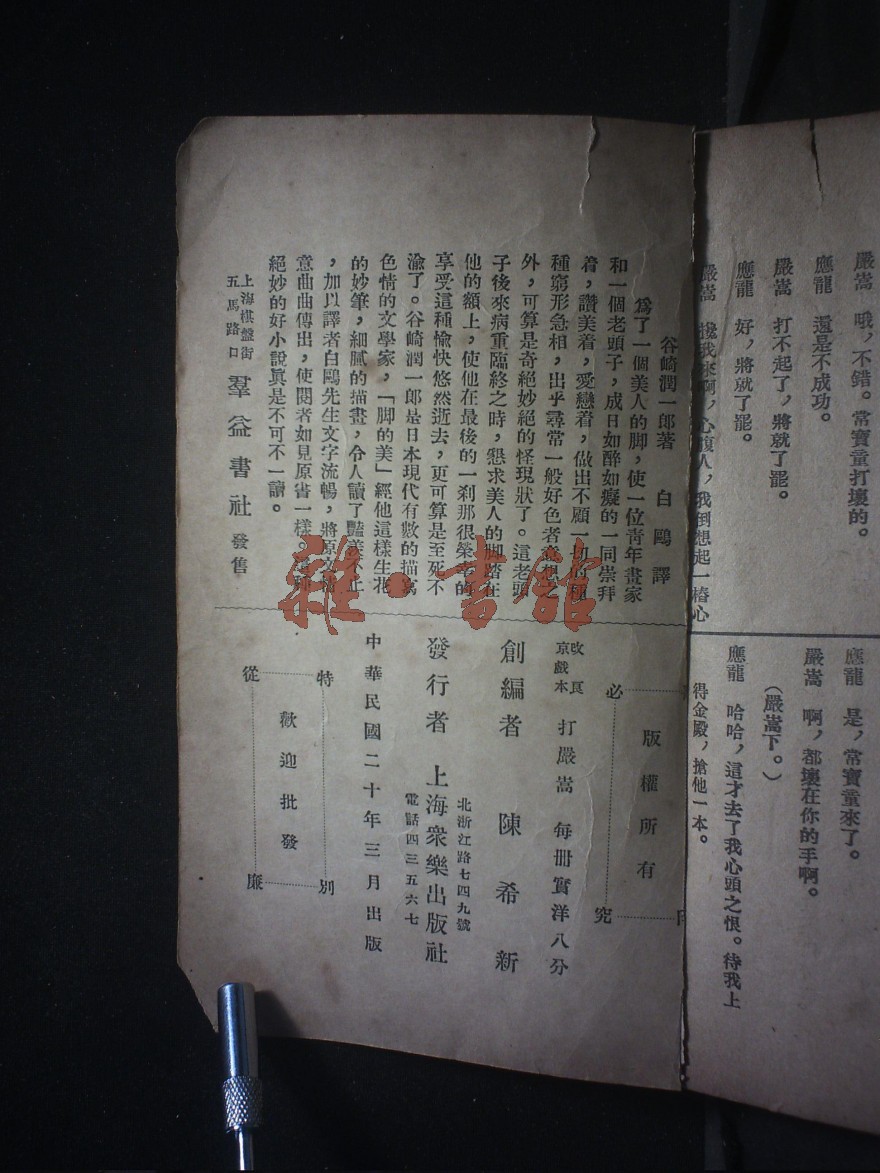 嚴嵩　哦，不錯。常寶童打壞的。
應龍　還是不成功。
嚴嵩　打不起了，將就了罷。
應龍　好，將就了罷。
嚴嵩　攙我來啊，心腹人，我到想起一樁心
應龍　是，常寶童來了。
嚴嵩　啊，都壞在你的手啊。
（嚴嵩下。）
應龍　哈哈，這才去了我心頭之恨。待我上
得金殿，搶他一本。
谷崎潤一郎著　白鷗譯
爲了一個美人的脚，使一位青年畫家
和一個老頭子，成日如醉如癡的一同崇拜
着，讚美着，愛戀着，做出不顧一切的種
種窮形急相，出乎尋常一般好色者意想之
外，可算是奇絕妙絕的怪現狀了。這老頭
子後來病重臨終之時，懇求美人的脚踏在
他的額上，使他在最後的一刹那很榮幸的
享受這種愉快悠然逝去，更可算是至死不
渝了。谷崎潤一郎是日本現代有數的描寫
色情的文學家，「脚的美」經他這樣生花
的妙筆，細膩的描畫，令人讀了豔羨不止
，加以譯者白鷗先生文字流暢，將原文
意曲曲傳出，使閱者如見原書一樣。
絕妙的好小說眞是不可不一讀。
上海棋盤街
五馬路口　羣益書社　發售
版權所有
必究
改良
京戲本　打嚴嵩　每册實洋八分
創編者　陳希新
發行者　上海衆樂出版社
北浙江路七四九號
電話四三五六七
中華民國二十年三月出版
特別
歡迎批發
從廉
雜·書館